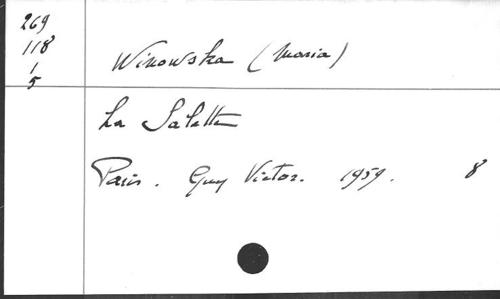 269
118
1
5
Winowska (Maria)
La Salette
Paris. Guy Victor. 1959. 8